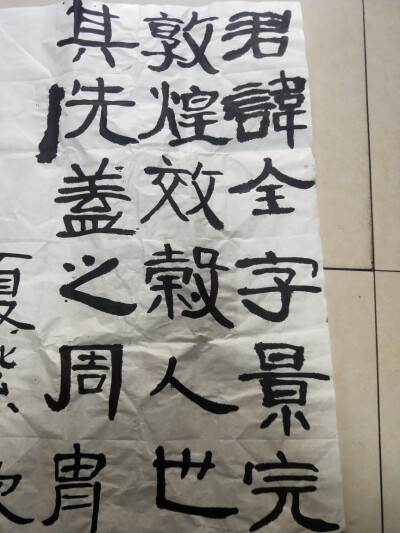 君諱全字景完
敦煌效穀人也
其先盖之周胄